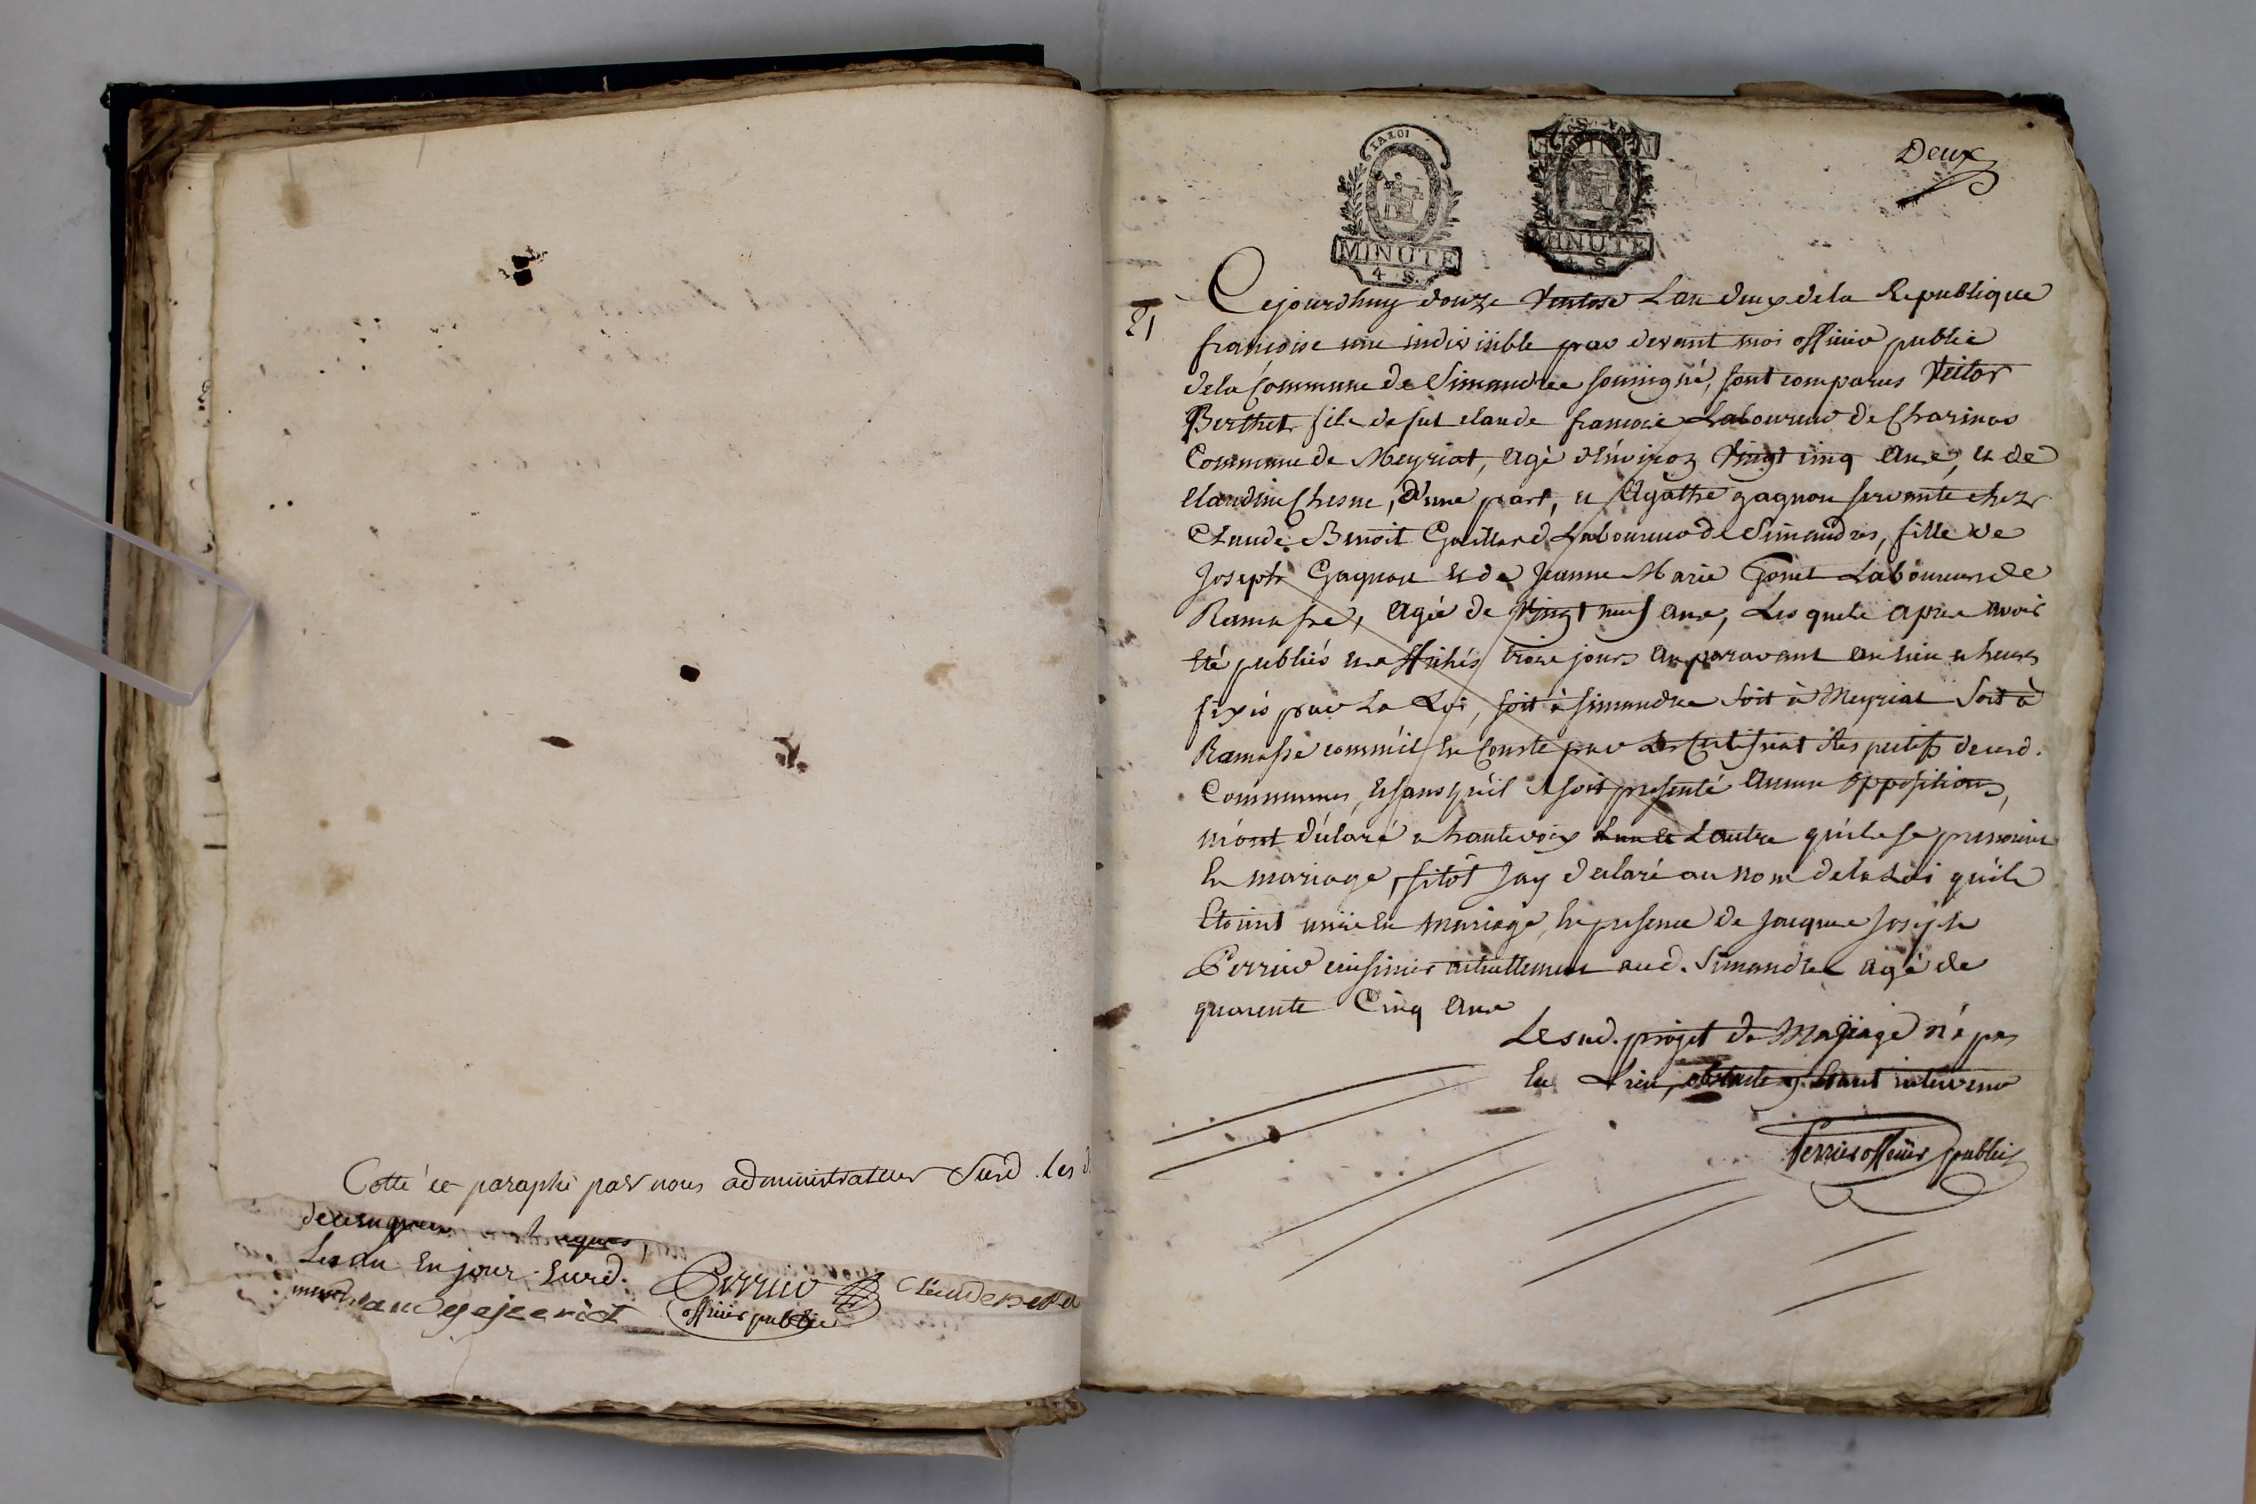 Cotté et paraphé par nous administrateur Susd. les
Les an en jour susd.
Perrier
officier public
LA LOI
MINUTE
4 S.
MINUTE
4 S.
Deux
21
Cejourdhuy douze Ventose Lan deux dela Republique
francoise une indivisible par devant moi officier public
dela Commune de Simandre soussigné, sont comparus Victor
Berthet fils de fut claude francois Laboureur de Charinas
Commune de Meyriat, agé d'environ Vingt cinq ans, et de
Claudine Chesne, d'une part, et Agathe gagnon servante chez
Claude Benoit Gaillard Laboureur de Simandres, fille de
Joseph Gagnon et de Jeanne Marie Gonet Laboureurs de
Ramasse, agée de Vingt neuf ans, Les quels apres avoir
été publiés et affichés trois jours auparavant au lieu et heures
fixés par La Loi, soit à Simandre soit à Meyriat soit à
Ramasse comm'il en Conste par Les Certificat respectifs desd.
Communes, et sans qu'il se soit presenté aucune oppositions,
m'ont déclaré a haute voix Lun et Lautre qu'ils se prenoient
en mariage, sitôt Jay declaré au nom dela Loi qu'ils
étoint unis en mariage, en presence de Jacques Joseph
Perrier cuisinier actuellement aud. Simandre agé de
quarente Cinq ans
Le sud. projet de Mariage n'a pas
eu Lieu, obstacle y étant intervenu
Perrier officier public